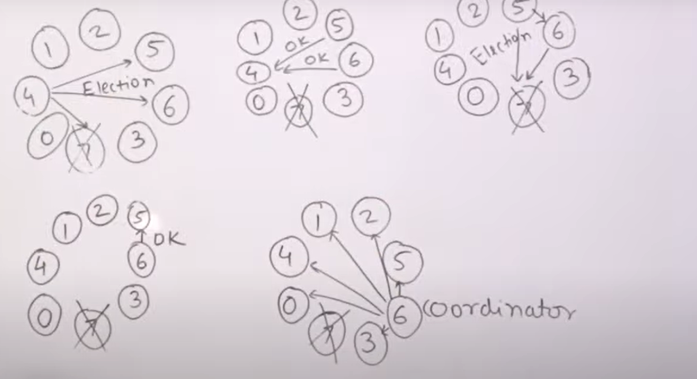 1 2 5
4 Election 6
0 7 3
1 2 5
OK
4 OK 6
0 7 3
1 2 5
4 Election 6
0 7 3
1 2 5
OK
4 6
0 7 3
1 2
4 5
0 6 Coordinator
7 3